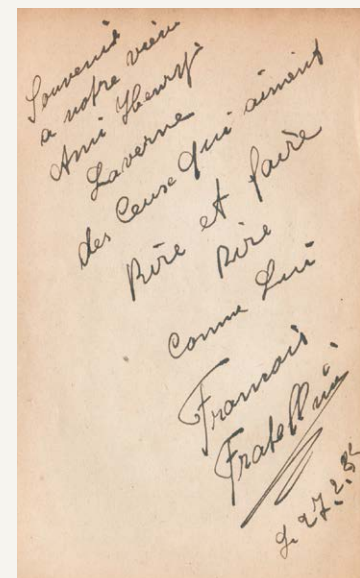 Souvenir
a notre vieux
Ami Henry
Laverne
des Ceuse qui aiment
Rire et faire
Rire
Comme Lui
Francois
Fratellini
Le 27.2.